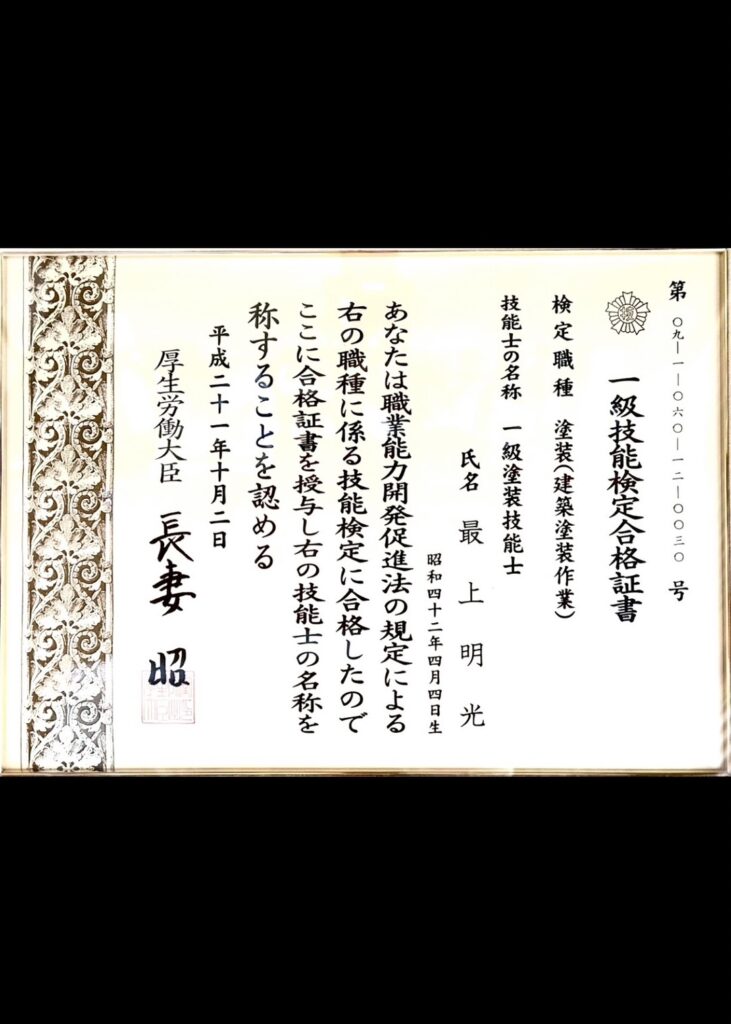 第 〇九―一―〇六〇―一二―〇〇三〇 号
一級技能検定合格証書
検定職種 塗装(建築塗装作業)
技能士の名称 一級塗装技能士
氏名 最上明光
昭和四十二年四月四日生
あなたは職業能力開発促進法の規定による
右の職種に係る技能検定に合格したので
ここに合格証書を授与し右の技能士の名称を
称することを認める
平成二十一年十月二日
厚生労働大臣 長妻 昭